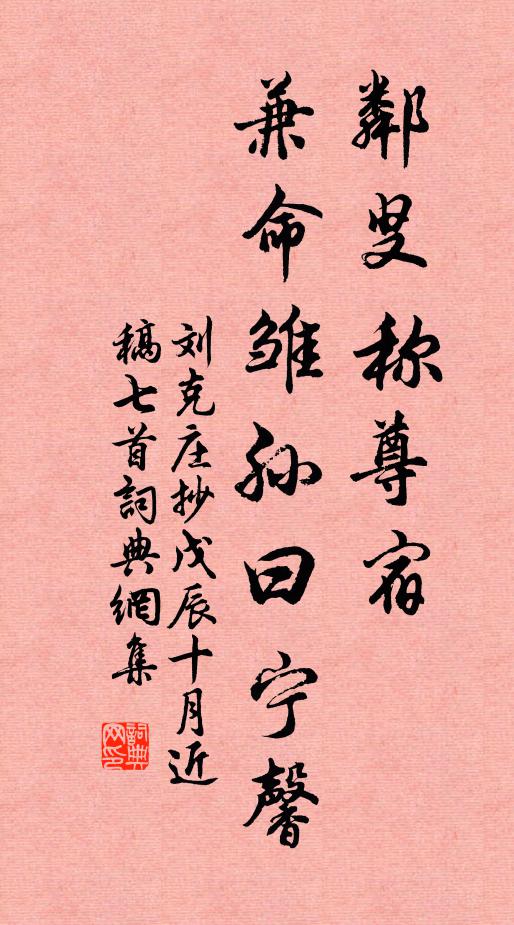 鄰叟称尊宿
兼命雏孙曰宁馨
刘克庄抄戊辰十月近
稿七首詞典網集
詞典
网印